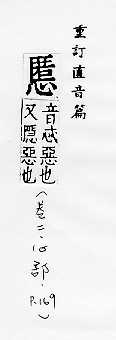 重訂直音篇
慝
音忒惡也
又隱惡也
(卷二·心部·P.169)